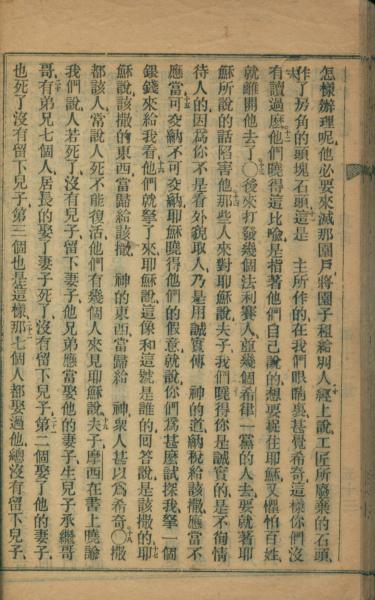 怎樣辦理呢、他必要來滅那園戶、將園子租給別人、經上說、工匠所廢棄的石頭、
作了房角的頭塊石頭、這是　主所作的、在我們眼睛裏甚覺希奇、這樣你們沒
有讀過麽、他們曉得這比喻是指著他們自己說的、想要捉住耶穌、又懼怕百姓、
就離開他去了○後來打發幾個法利賽人、並幾個希律一黨的人去、要就著耶
穌所說的話陷害他、那些人來對耶穌說、夫子、我們曉得你是誠實的、是不徇情
待人的、因為你不是看外貌取人、乃是用誠實傳　神的道、納稅給該撒、應當不
應當、可交納、不可交納、耶穌曉得他們的假意、就說、你們為甚麽試探我、拏一個
銀錢來給我看、他們就拏了來、耶穌說、這像和這號是誰的、回答說、是該撒的、耶
穌說、該撒的東西、當歸給該撒、　神的東西、當歸給　神、眾人甚以為希奇○撒
都該人、常說人死不能復活、他們有幾個人來見耶穌說、夫子、摩西在書上曉諭
我們說、人若死了、沒有兒子、留下妻子、他兄弟應當娶他的妻子、生兒子承繼哥
哥、有弟兄七個人、居長的娶了妻子、死了、沒有留下兒子、第二個娶了他的妻子、
也死了、沒有留下兒子、第三個也是這樣、那七個人都娶過他、總沒有留下兒子、